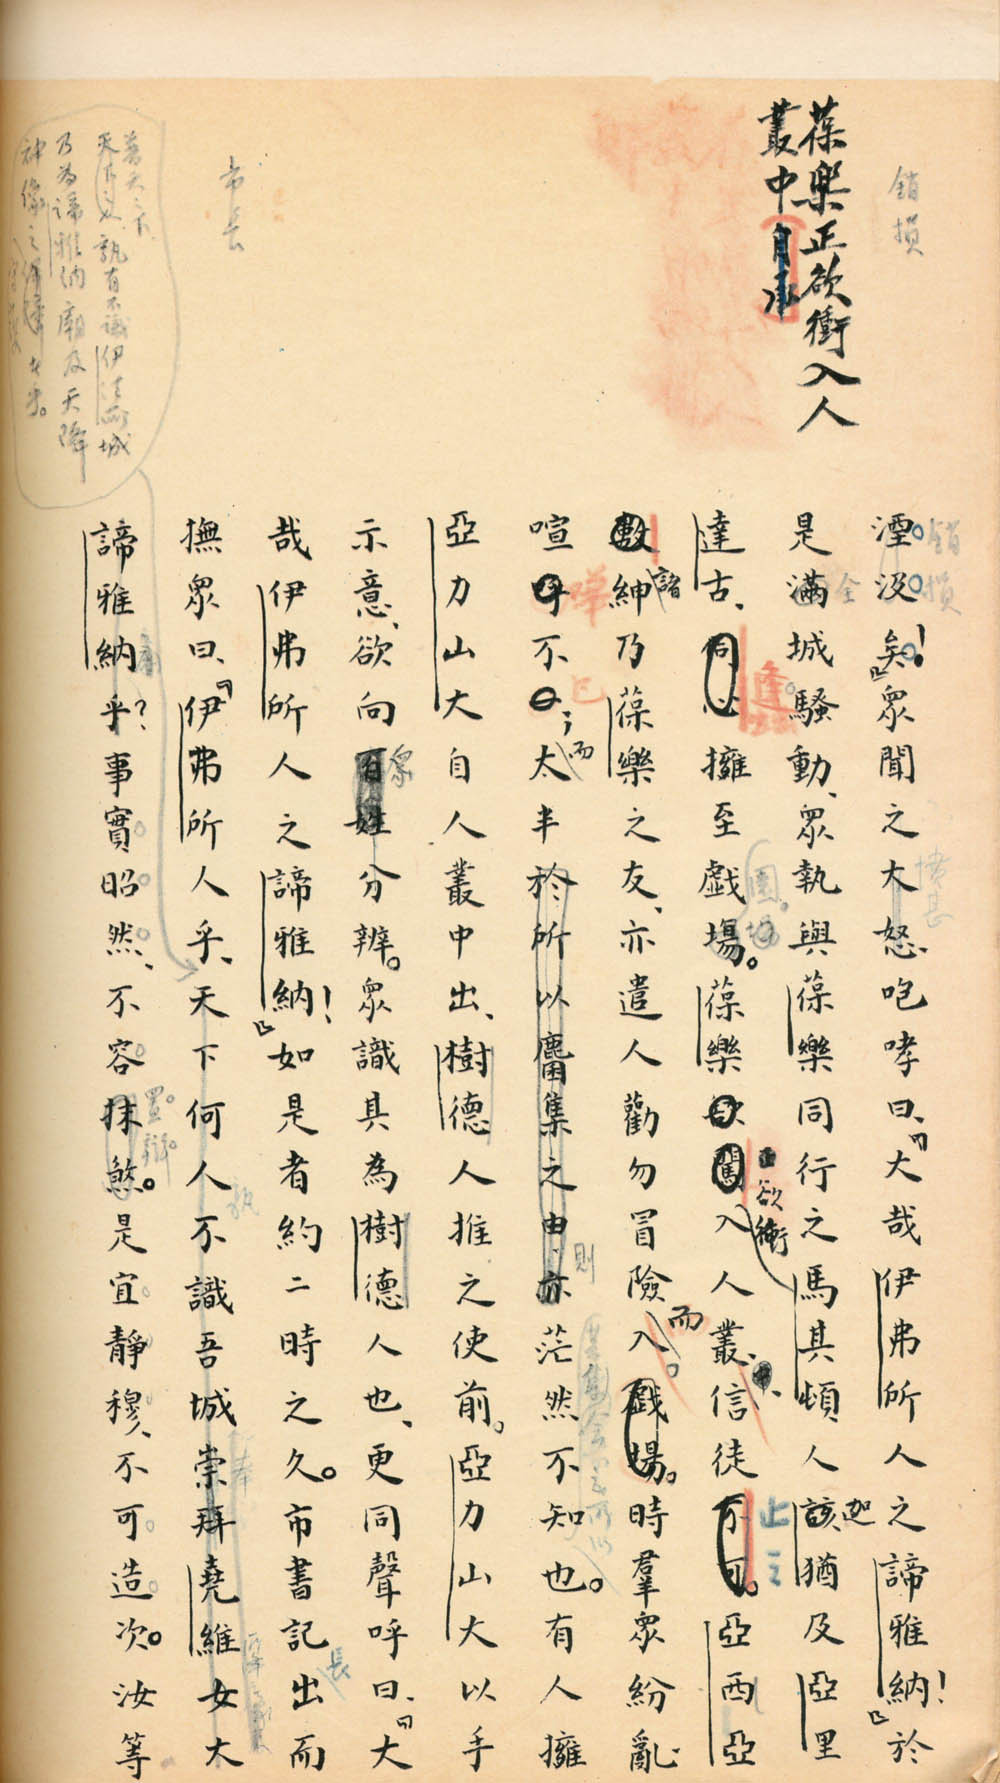 銷損
葆樂正欲衝入人
叢中自承
市長
普天之下
天下人孰有不識伊弗所城
乃為諦雅納廟及天降
神像之
湮沒矣!』眾聞之大怒、咆哮曰、『大哉伊弗所人之諦雅納!』於
銷損
是滿城騷動、眾執與葆樂同行之馬其頓人該猶及亞里
全
迦
達古、同心擁至戲場。葆樂欲闖入人叢、信徒不可。亞西亞
逢
圜場
正欲衝
中
止之
數紳乃葆樂之友、亦遣人勸勿冒險入戲場。時羣眾紛亂
諸
而
喧呼不已、太半於所以麕集之由、亦茫然不知也。有人擁
嘩
已
;而
則
亞力山大自人叢中出、樹德人推之使前。亞力山大以手
示意、欲向百姓分辨。眾識其為樹德人也、更同聲呼曰、『大
眾
哉伊弗所人之諦雅納!』如是者約二時之久。市書記出而
長
撫眾曰、『伊弗所人乎、天下何人不識吾城崇拜堯維女大
孰
奉
諦雅納乎?事實昭然、不容抹煞。是宜靜穆、不可造次。汝等
廟
置辯